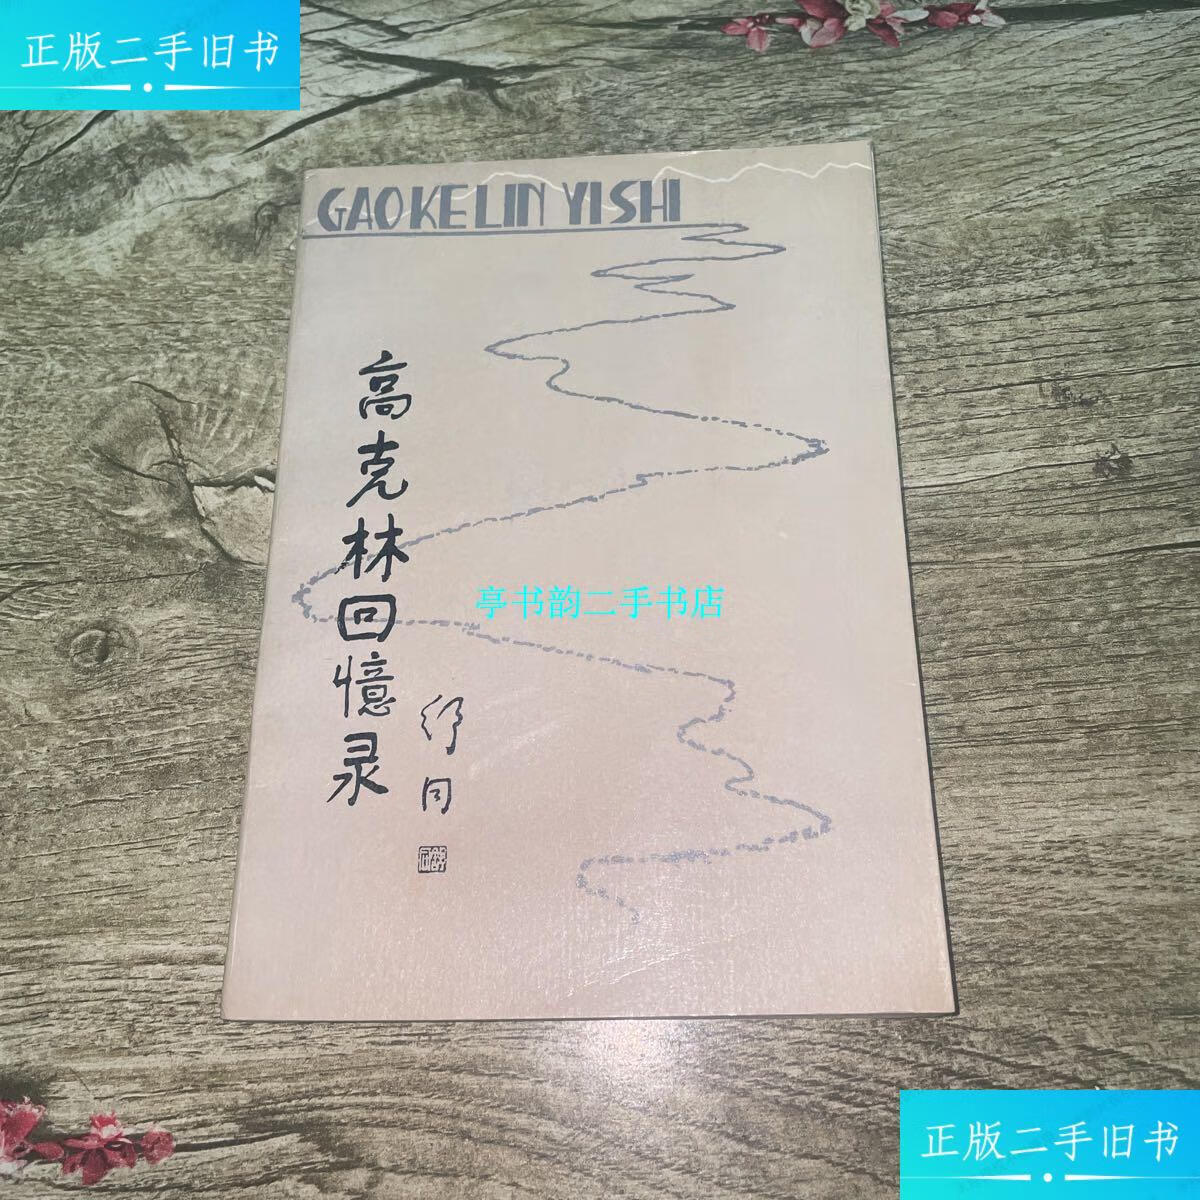 正版二手旧书
GAOKELIN YISHI
高克林回憶录
舒同
亭书韵二手书店
正版二手旧书